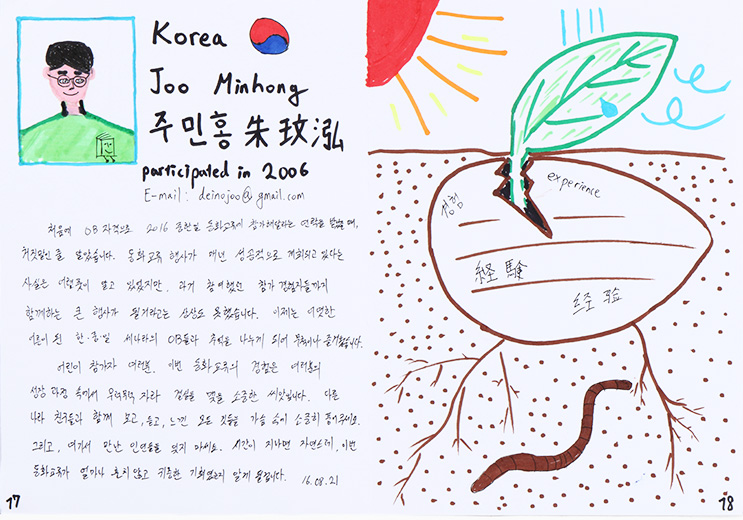 Korea
Joo Minhong
주민홍 朱玟泓
participated in 2006
E-mail: deinojoo@gmail.com
처음에 OB 자격으로 2016 한중일 동화교류에 참가해달라는 연락을 받았을 때,
거짓말인 줄 알았습니다. 동화교류 행사가 매년 성공적으로 개최되고 있다는
사실은 어렴풋이 알고 있었지만, 과거 참여했던 참가 경험자들까지
함께하는 큰 행사가 될거라고는 상상도 못했습니다. 이제는 어엿한
어른이 된 한·중·일 세나라의 OB들과 추억을 나누게 되어 무척이나 즐거웠습니다.
어린이 참가자 여러분. 이번 동화교류의 경험은 여러분의
성장 과정 속에서 무럭무럭 자라 결실을 맺을 소중한 씨앗입니다. 다른
나라 친구들과 함께 보고, 듣고, 느낀 모든 것들을 가슴 속에 소중히 품어주세요.
그리고, 여기서 만난 인연들을 잊지 마세요. 시간이 지나면 자연스레, 이번
동화교류가 얼마나 흔치 않고 귀중한 기회였는지 알게 될겁니다. 16.08.21
17
경험
experience
経験
经验
18